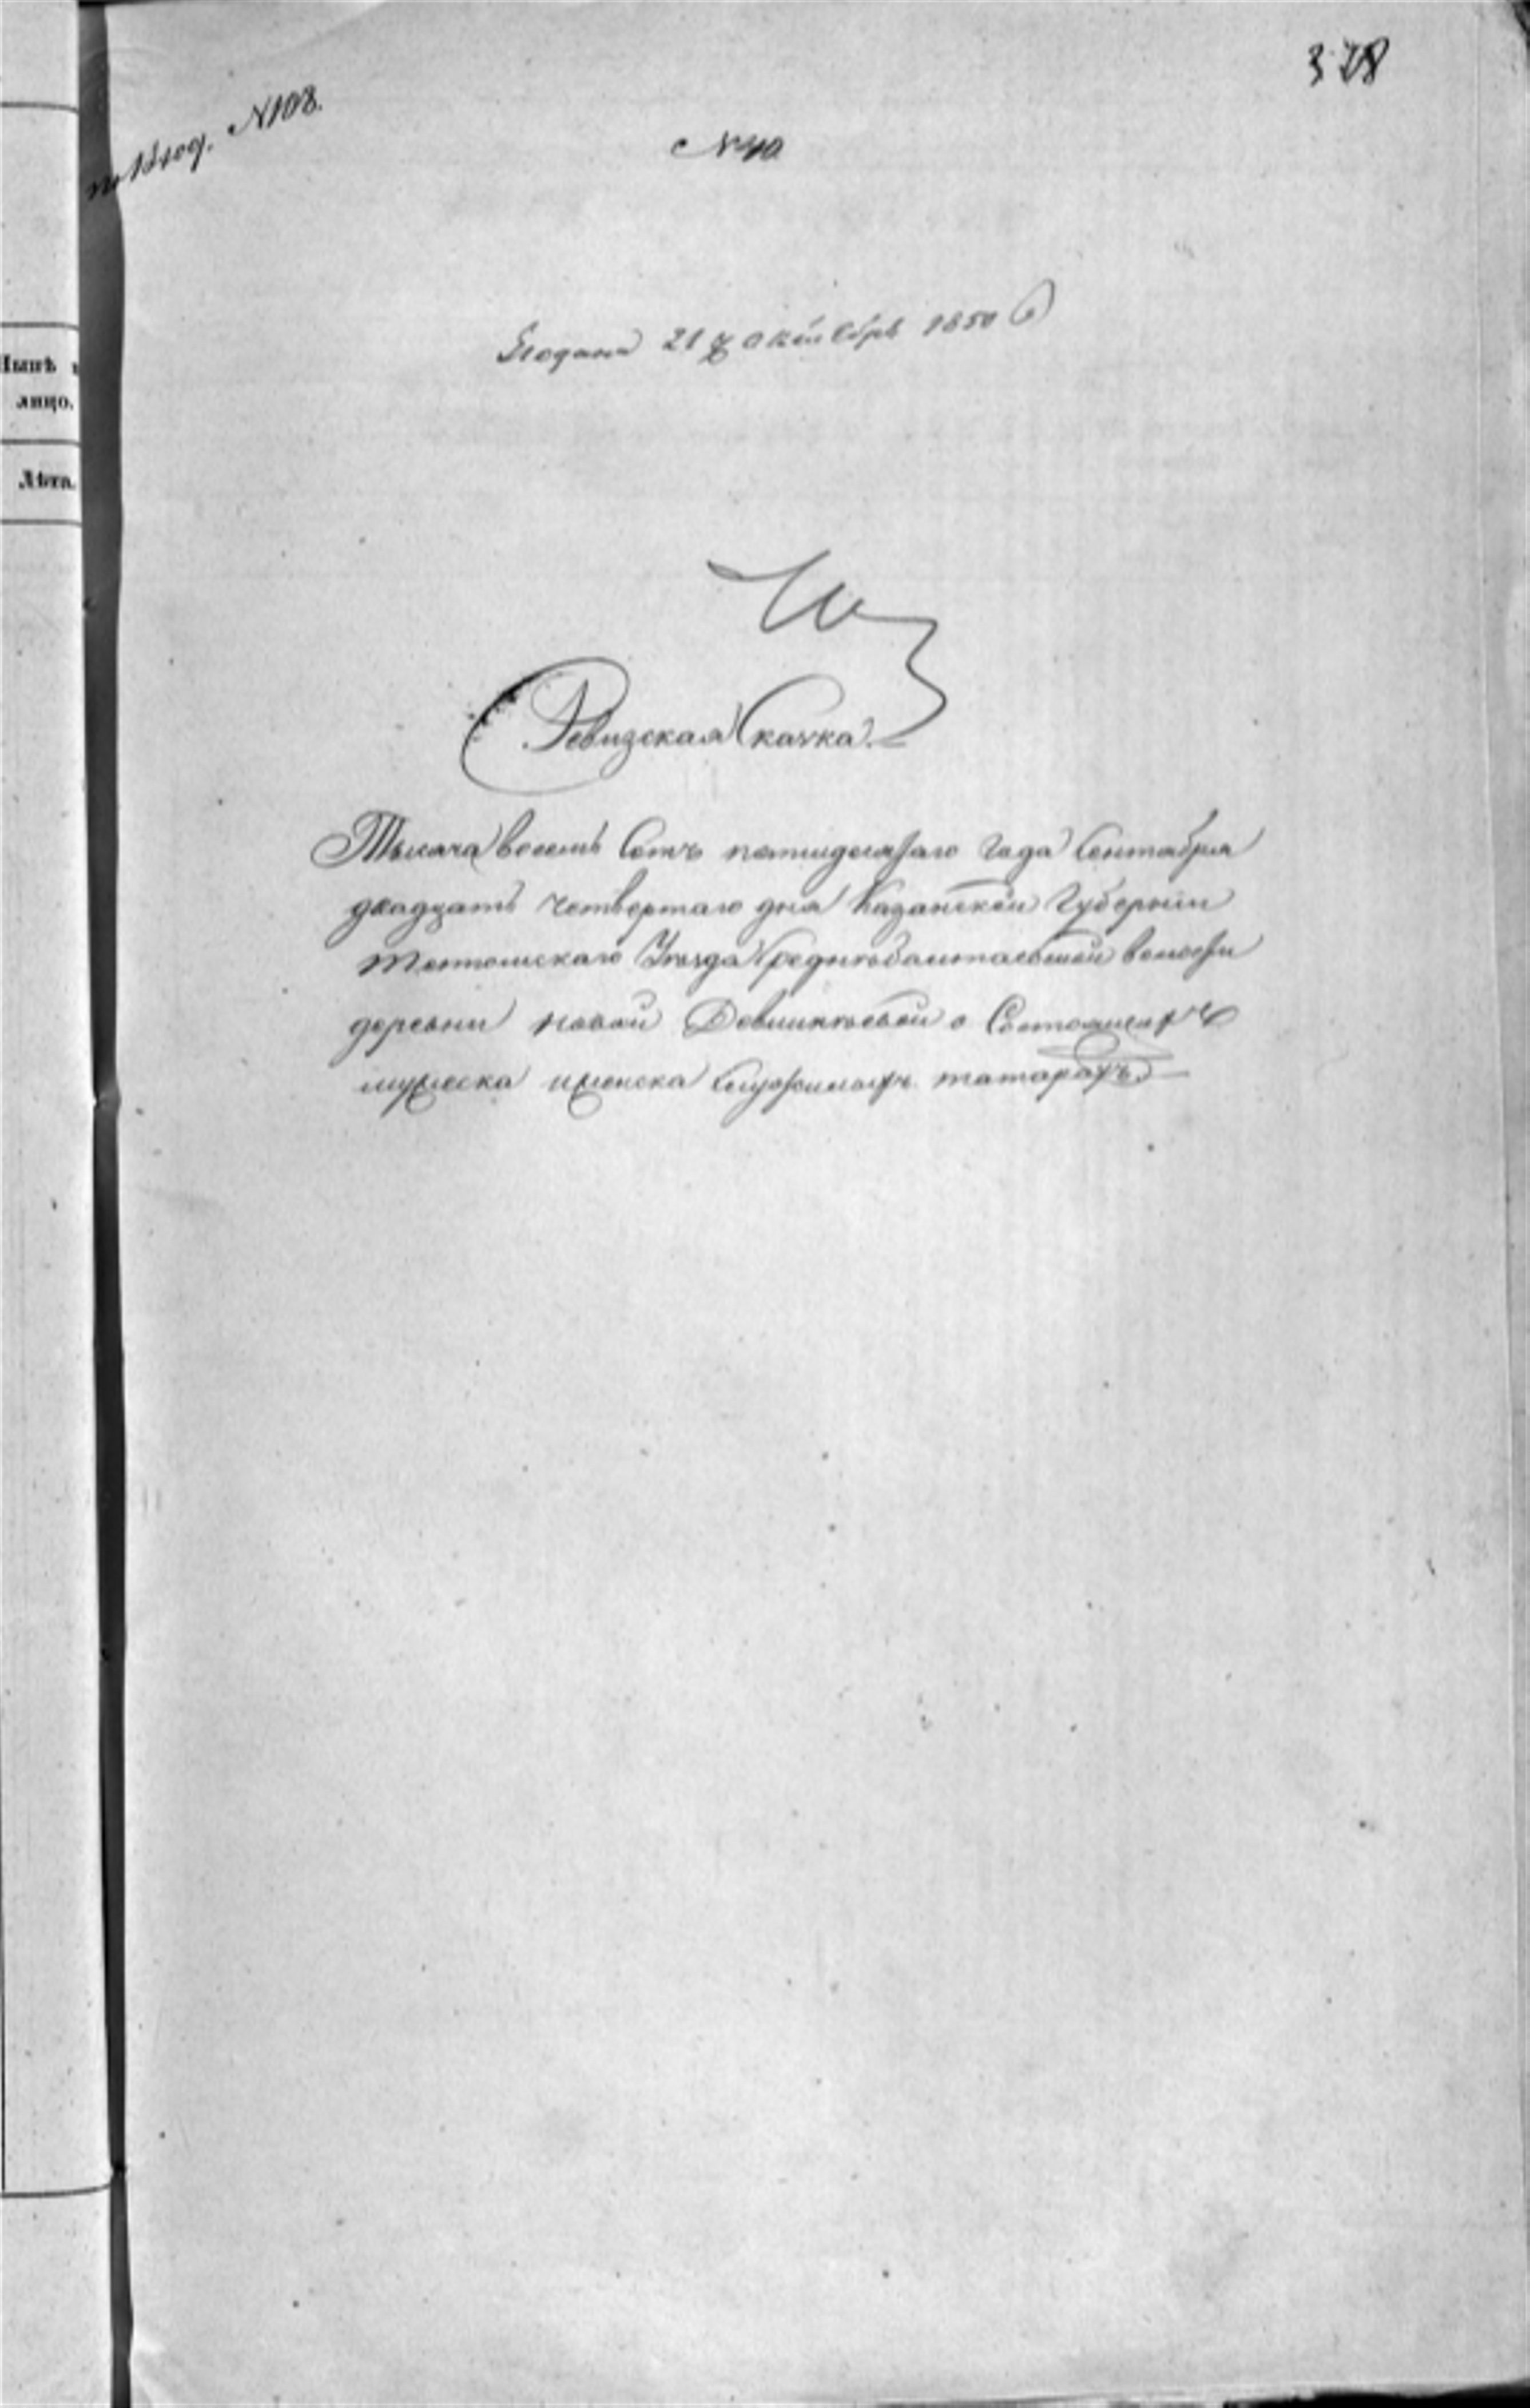 378
по 1й год. №108.
№40
Подана 21 октября 1850
Нынѣ
лицо.
Лѣта.
Ревизская Скаска.
Тысяча восемь Сотъ пятидесятаго Года Сентября
двадцать четвертаго дня Казанской Губернии
Тетюшскаго Уезда Среднебалтаевской волости
деревни новой о Состоящихъ
мужеска и женска служилыхъ татарахъ